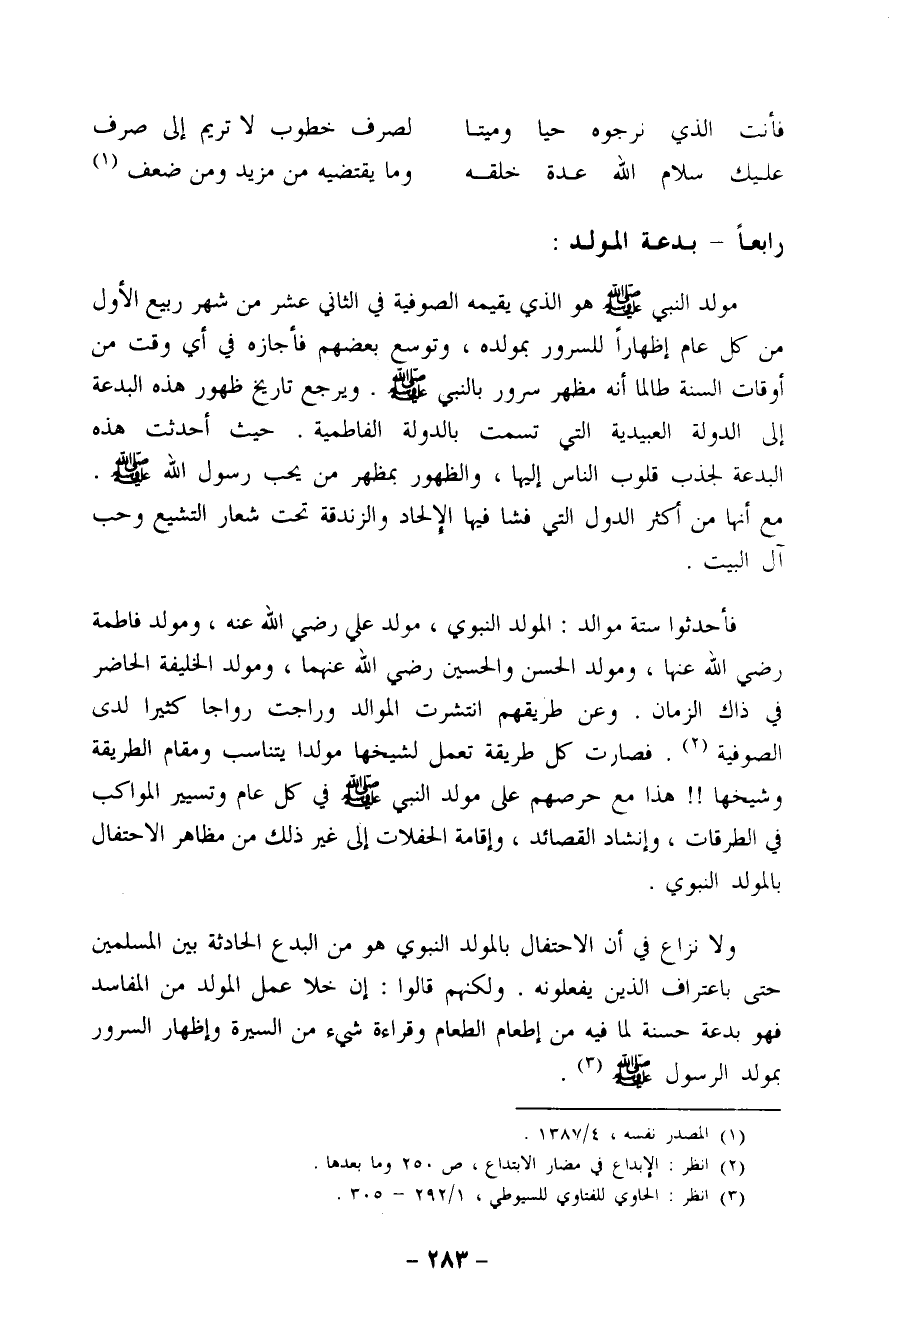 فأنت الذي نرجوه حيا وميتـا لصرف خطوب لا تريم إلى صرف
عليك سلام الله عـدة خلقـه وما يقتضيه من مزيد ومن ضعف (١)
رابعاً – بـدعـة المولـد :
مولد النبي ﷺ هو الذي يقيمه الصوفية في الثاني عشر من شهر ربيع الأول
من كل عام إظهاراً للسرور بمولده ، وتوسع بعضهم فأجازه في أي وقت من
أوقات السنة طالما أنه مظهر سرور بالنبي ﷺ . ويرجع تاريخ ظهور هذه البدعة
إلى الدولة العبيدية التي تسمت بالدولة الفاطمية . حيث أحدثت هذه
البدعة لجذب قلوب الناس إليها ، والظهور بمظهر من يحب رسول الله ﷺ .
مع أنها من أكثر الدول التي فشا فيها الإلحاد والزندقة تحت شعار التشيع وحب
آل البيت .
فأحدثوا ستة موالد : المولد النبوي ، مولد علي رضي الله عنه ، ومولد فاطمة
رضي الله عنها ، ومولد الحسن والحسين رضي الله عنهما ، ومولد الخليفة الحاضر
في ذاك الزمان . وعن طريقهم انتشرت الموالد وراجت رواجا كثيرا لدى
الصوفية (٢) . فصارت كل طريقة تعمل لشيخها مولدا يتناسب ومقام الطريقة
وشيخها !! هذا مع حرصهم على مولد النبي ﷺ في كل عام وتسيير المواكب
في الطرقات ، وإنشاد القصائد ، وإقامة الحفلات إلى غير ذلك من مظاهر الاحتفال
بالمولد النبوي .
ولا نزاع في أن الاحتفال بالمولد النبوي هو من البدع الحادثة بين المسلمين
حتى باعتراف الذين يفعلونه . ولكنهم قالوا : إن خلا عمل المولد من المفاسد
فهو بدعة حسنة لما فيه من إطعام الطعام وقراءة شيء من السيرة وإظهار السرور
بمولد الرسول ﷺ (٣) .
(١) المصدر نفسه ، ١٣٨٧/٤ .
(٢) انظر : الإبداع في مضار الابتداع ، ص ٢٥٠ وما بعدها .
(٣) انظر : الحاوي للفتاوي للسيوطي ، ٢٩٢/١ – ٣٠٥ .
- ٢٨٣ -